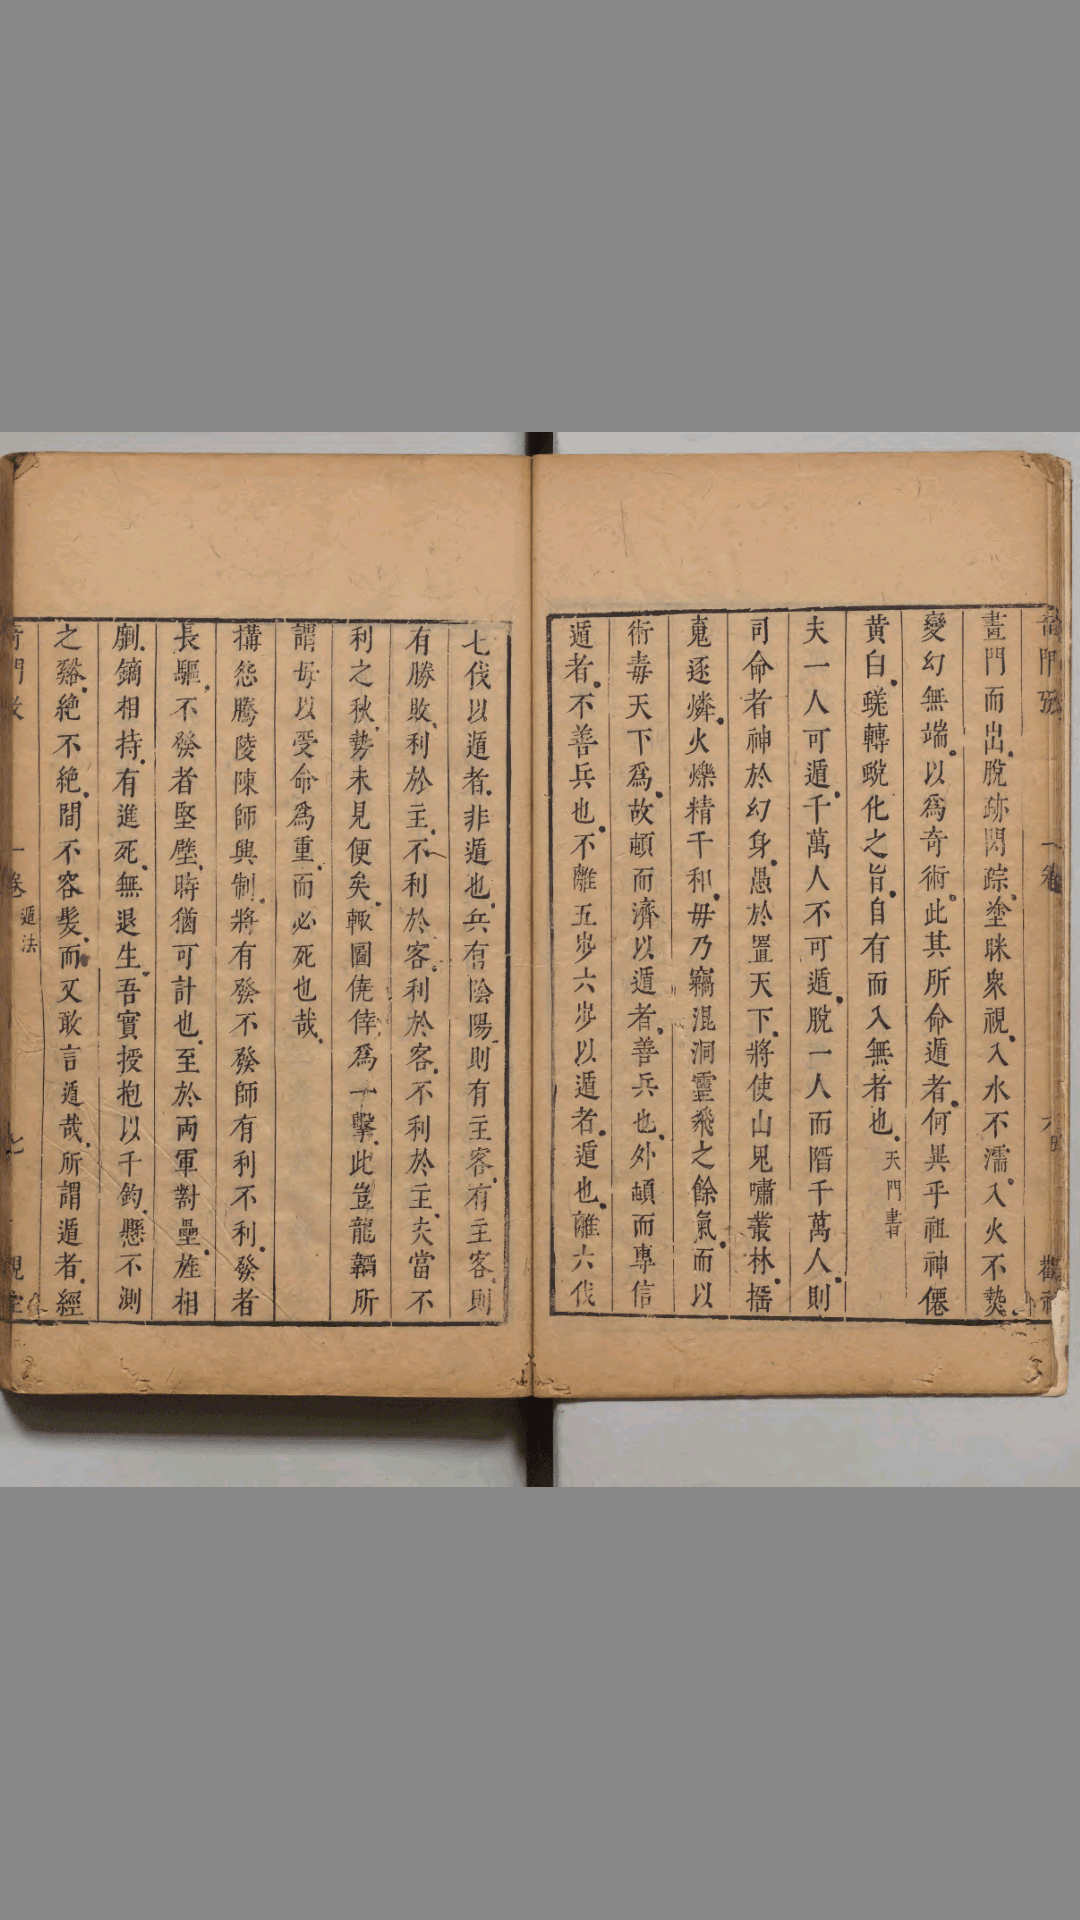 畫門而出脫跡閃踪塗眯衆視入水不濡入火不爇
變幻無端以爲奇術此其所命遁者何異乎祖神僊
黄白蜣轉蛻化之旨自有而入無者也天門書
夫一人可遁千萬人不可遁脫一人而㬱千萬人則
司命者神於幻身愚於置天下將使山鬼嘯叢林搖
嵬逐燐火爍精千和毋乃竊混洞靈飛之餘氣而以
術毒天下爲故頔而濟以遁者善兵也外頔而專信
遁者不善兵也不離五步六步以遁者遁也離六伐
七伐以遁者非遁也兵有陰陽則有主客有主客則
有勝敗利於主不利於客利於客不利於主夫當不
利之秋勢未見便矣輙圖僥倖爲一擊此豈龍韜所
謂毋以受命爲重而必死也哉
搆怨騰陵陳師興制將有發不發師有利不利發者
長驅不發者堅壁時猶可計也至於兩軍對壘旌相
劘鏑相持有進死無退生吾實授抱以千鈞懸不測
之谿絶不絶間不容髮而又敢言遁哉所謂遁者經
一卷
遁法
七